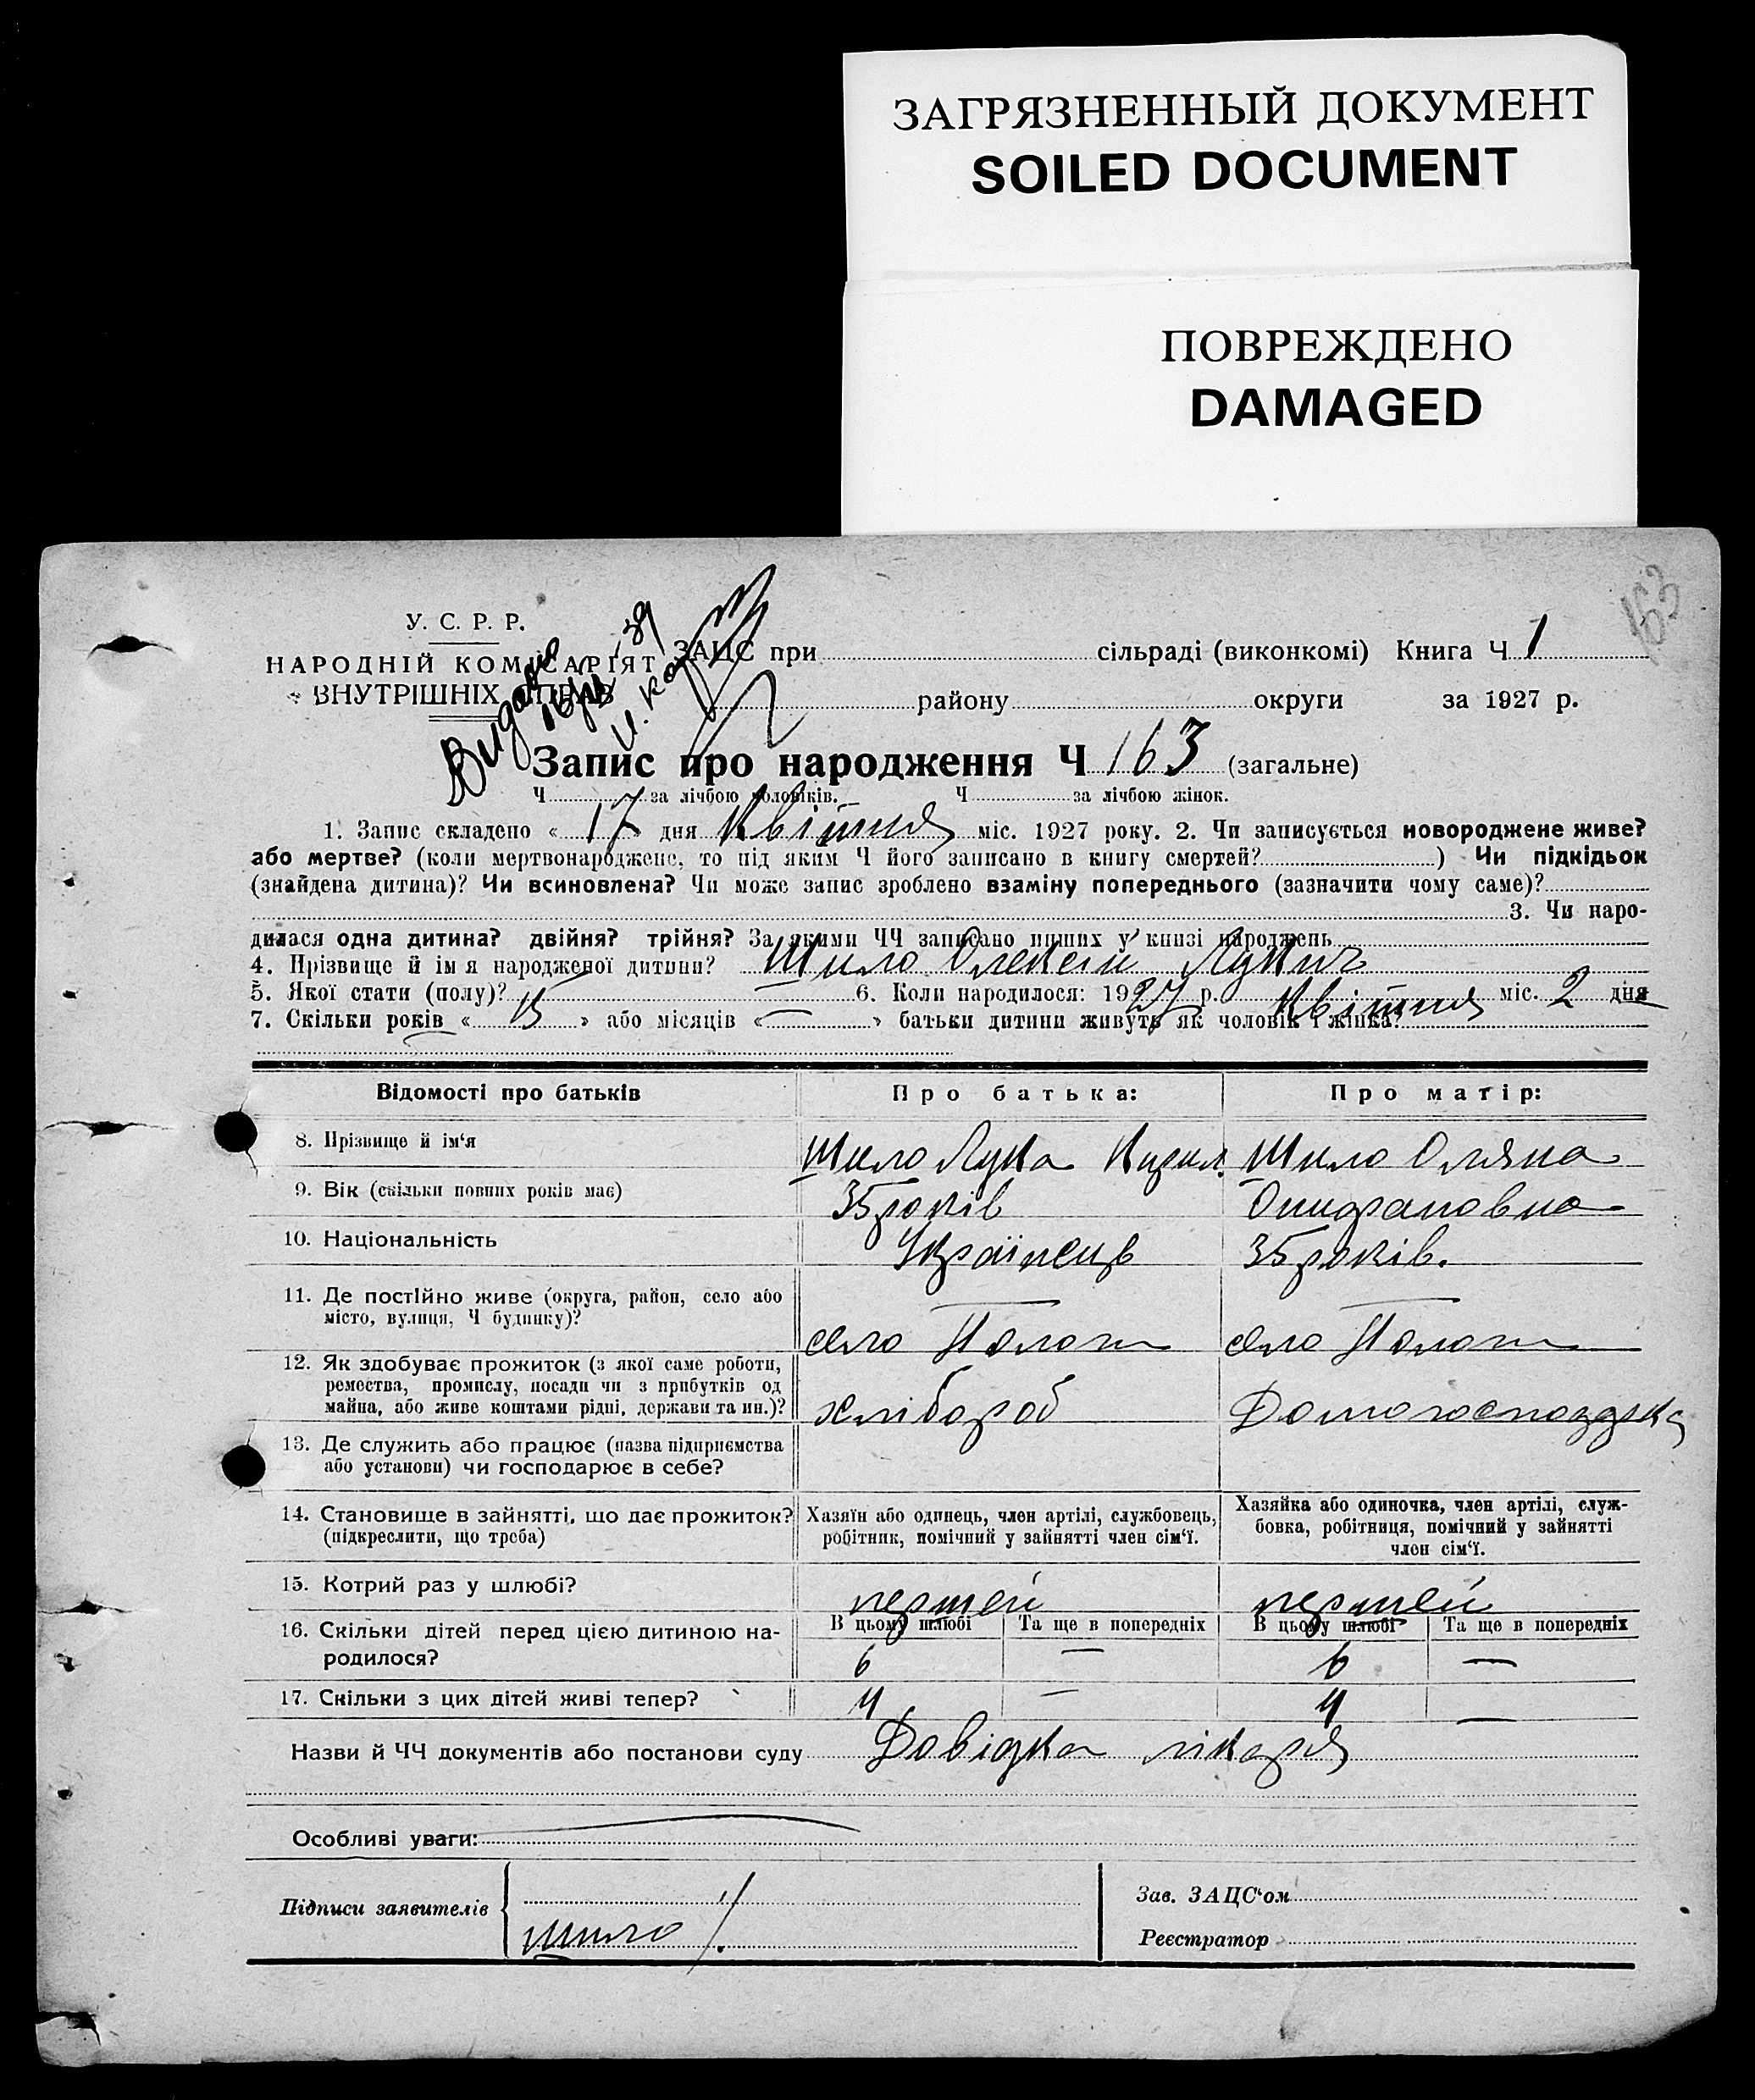 ЗАГРЯЗНЕННЫЙ ДОКУМЕНТ
SOILED DOCUMENT
ПОВРЕЖДЕНО
DAMAGED
163
У. С. Р. Р.
НАРОДНІЙ КОМІСАРІЯТ
ВНУТРІШНІХ СПРАВ
Видано
ЗАЦС при сільраді (виконкомі) Книга Ч 1
району округи за 1927 р.
Запис про народження Ч 163 (загальне)
Ч за лічбою чоловіків. Ч за лічбою жінок.
1. Запис складено « 17 » дня Квітня міс. 1927 року. 2. Чи записується новороджене живе?
або мертве? (коли мертвонароджене, то під яким Ч його записано в книгу смертей? ) Чи підкідьок
(знайдена дитина)? Чи всиновлена? Чи може запис зроблено взаміну попереднього (зазначити чому саме)?
3. Чи наро-
дилася одна дитина? двійня? трійня? За якими ЧЧ записано инших у книзі народжень
4. Прізвище й ім я народженої дитини? Шило Олексій Лукич
5. Якої стати (полу)? 6. Коли народилося: 1927 р. Квітня міс. 2 дня
7. Скільки років « 15 » або місяців « — » батьки дитини живуть як чоловік і жінка?
Відомості про батьків Про батька: Про матір:
8. Прізвище й ім'я Шило Лука Кирил. Шило Оляна
9. Вік (скільки повних років має) 35 років
10. Національність Українець 35 років.
11. Де постійно живе (округа, район, село або
місто, вулиця, Ч будинку)? село Пологи село Пологи
12. Як здобуває прожиток (з якої саме роботи,
ремества, промислу, посади чи з прибутків од
майна, або живе коштами рідні, держави та ин.)? хлібороб
13. Де служить або працює (назва підприємства
або установи) чи господарює в себе?
14. Становище в зайнятті, що дає прожиток?
(підкреслити, що треба)
Хазяїн або одинець, член артілі, службовець,
робітник, помічний у зайнятті член сім'ї.
Хазяйка або одиночка, член артілі, служ-
бовка, робітниця, помічний у зайнятті
член сім'ї.
15. Котрий раз у шлюбі? першей першей
16. Скільки дітей перед цією дитиною на-
родилося?
В цьому шлюбі Та ще в попередніх В цьому шлюбі Та ще в попередніх
6 — 6 —
17. Скільки з цих дітей живі тепер? 4 — 4 —
Назви й ЧЧ документів або постанови суду Довідка лікаря
Особливі уваги:
Підписи заявителів Шило
Зав. ЗАЦС'ом
Реєстратор